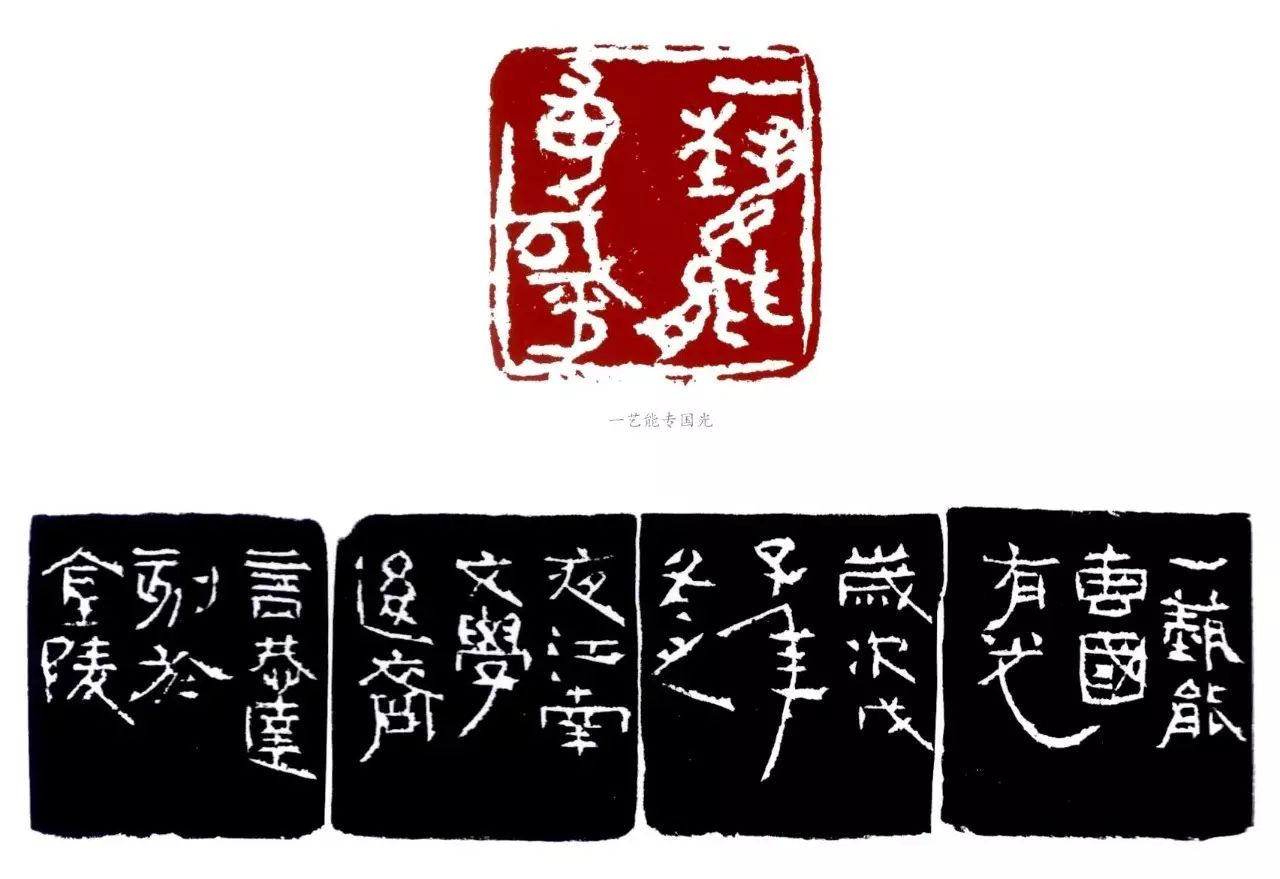 一藝能
專國
一艺能专国光
一藝能
專國
有光
歲次戊
子年
冬之
夜江南
文學
齋
言恭達
刻於
金陵